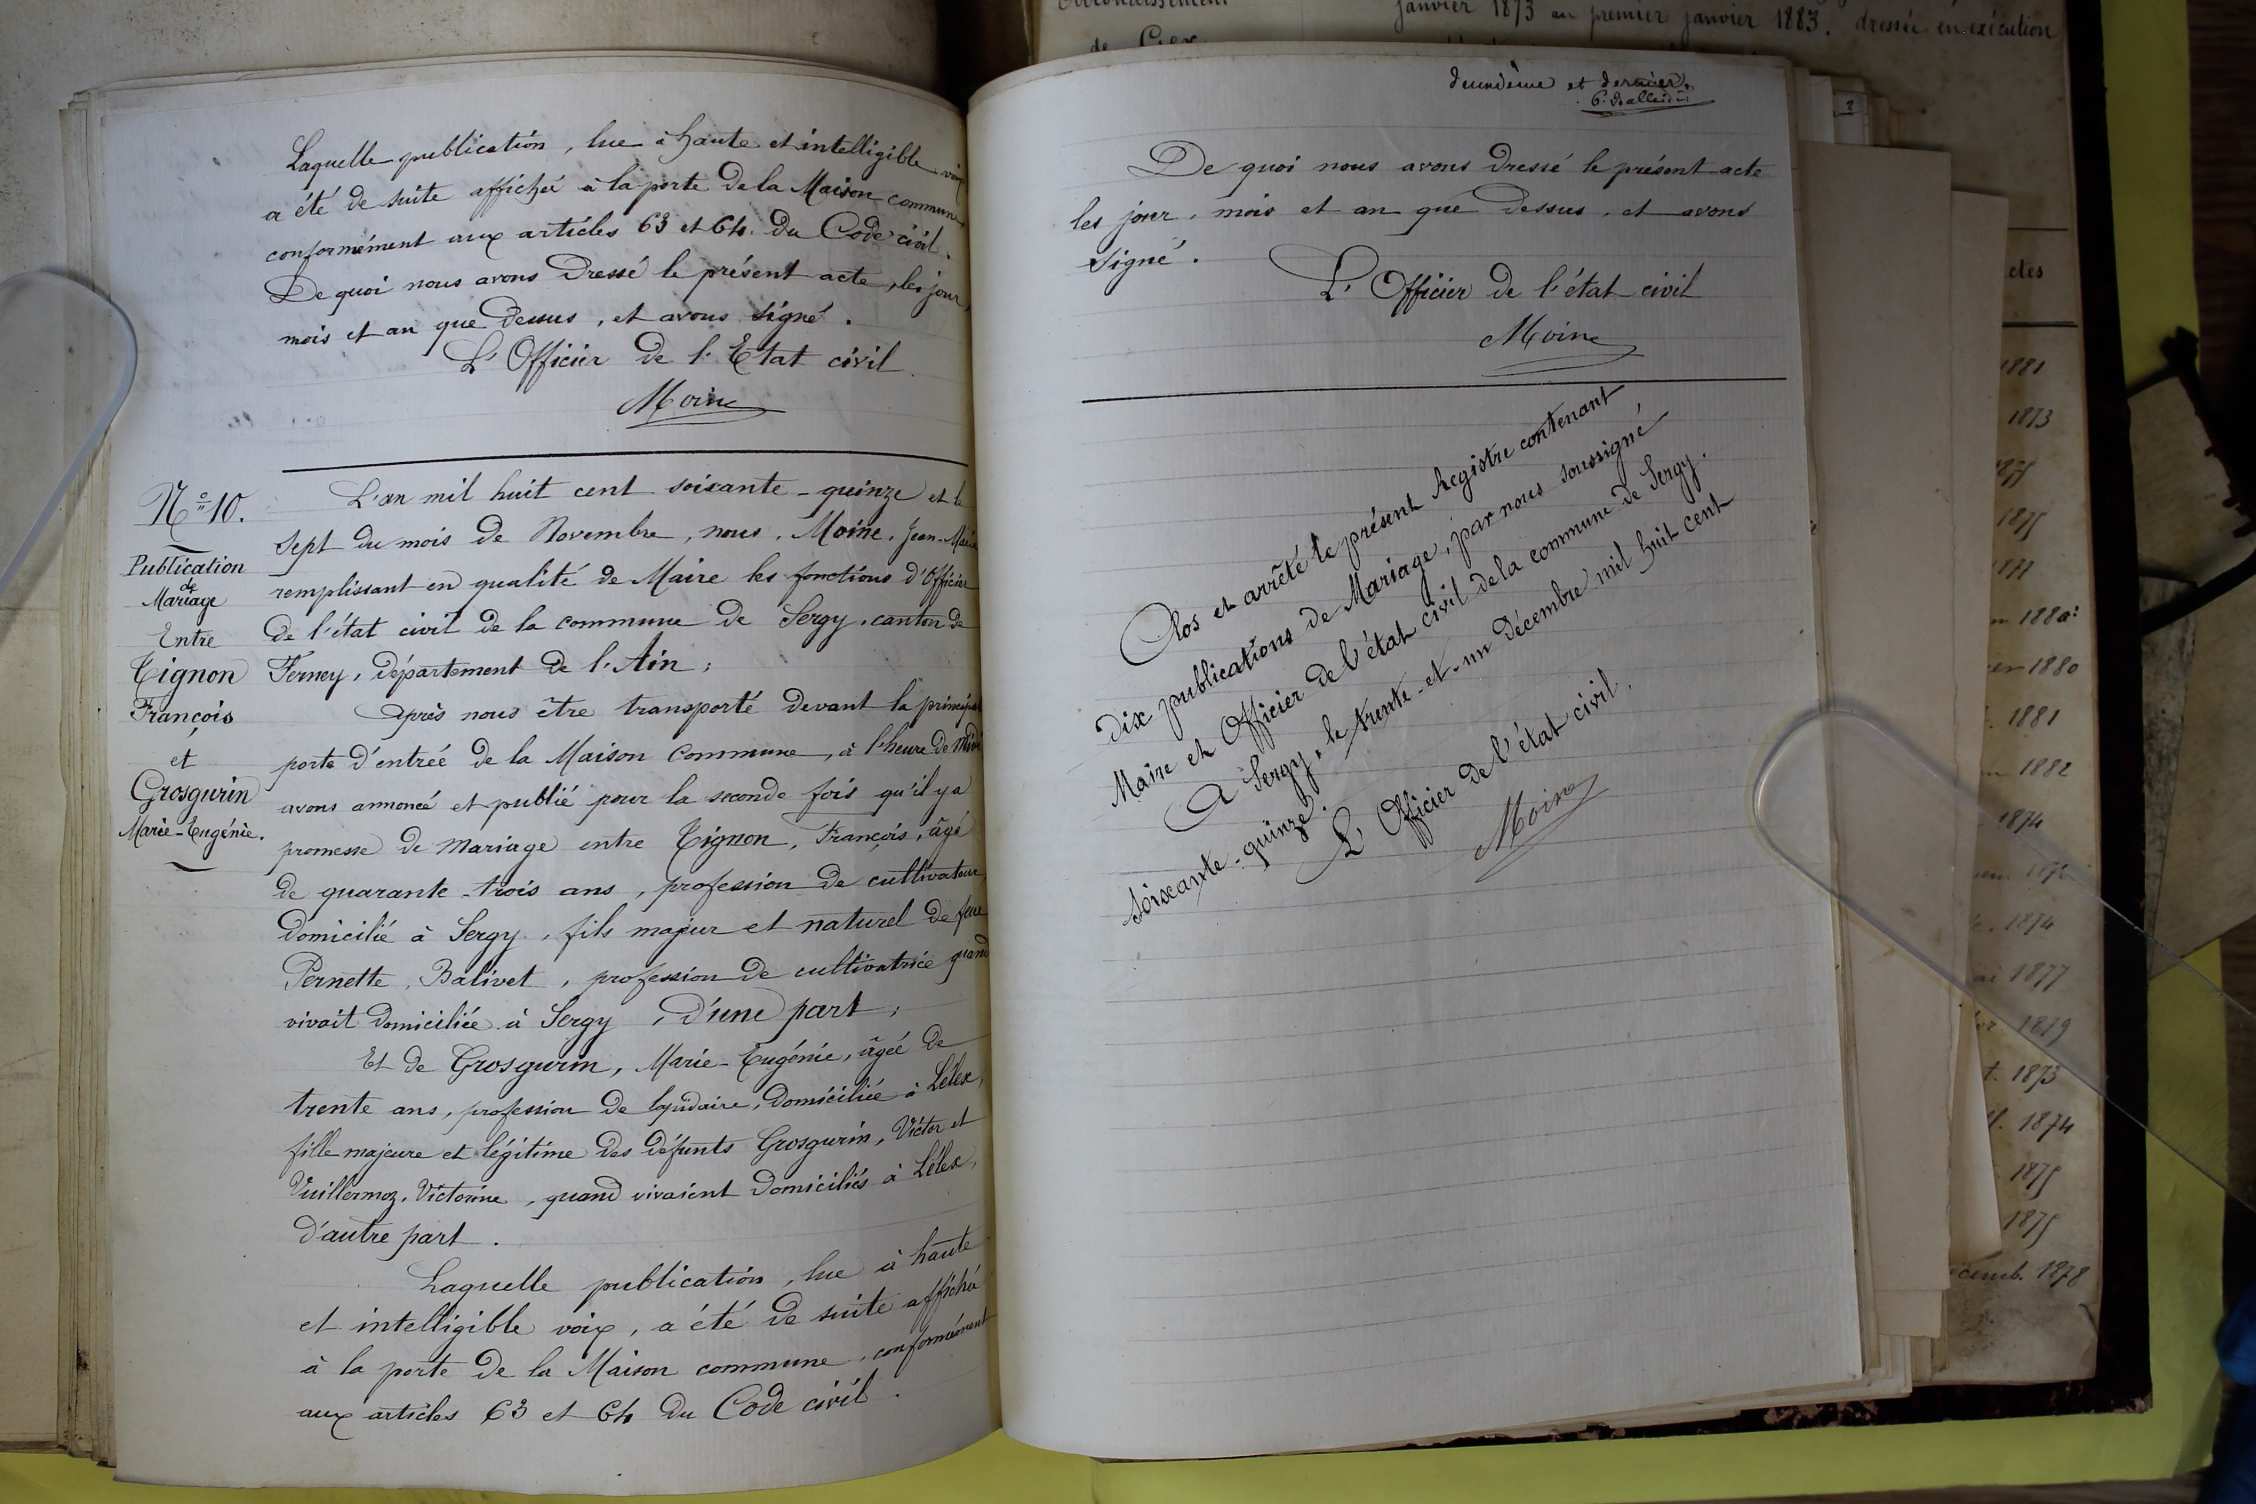 Laquelle publication, lue à haute et intelligible voix
a été de suite affichée à la porte de la Maison commune
conformément aux articles 63 et 64 du Code civil.
De quoi nous avons dressé le présent acte, les jour,
mois et an que dessus, et avons signé.
L'Officier de l'Etat civil
Moine
N° 10.
Publication
de
Mariage
Entre
Tignon
François
et
Grosgurin
Marie-Eugénie.
L'an mil huit cent soixante-quinze et le
sept du mois de Novembre, nous, Moine, Jean-Marie
remplissant en qualité de Maire les fonctions d'Officier
de l'état civil de la commune de Sergy, canton de
Ferney, département de l'Ain;
Après nous être transporté devant la principale
porte d'entrée de la Maison commune, à l'heure de Midi
avons annoncé et publié pour la seconde fois qu'il y a
promesse de mariage entre Tignon, François, âgé
de quarante-trois ans, profession de cultivateur
domicilié à Sergy, fils majeur et naturel de feue
Pernette, Balivet, profession de cultivatrice quand
vivait domiciliée à Sergy, d'une part;
Et de Grosgurin, Marie-Eugénie, âgée de
trente ans, profession de lapidaire, domiciliée à Lélex,
fille majeure et légitime des défunts Grosgurin, Victor et
Vuillermoz, Victorine, quand vivaient domiciliés à Lélex,
d'autre part.
Laquelle publication, lue à haute
et intelligible voix, a été de suite affichée
à la porte de la Maison commune, conformément
aux articles 63 et 64 du Code civil.
deuxième et dernier.
De quoi nous avons dressé le présent acte
les jour, mois et an que dessus, et avons
signé.
L'Officier de l'état civil
Moine
Clos et arrêté le présent Registre contenant
dix publications de Mariage, par nous soussigné,
Maire et Officier de l'état civil de la commune de Sergy.
A Sergy, le trente-et-un décembre mil huit cent
soixante-quinze.
L'Officier de l'état civil.
Moine
janvier 1873 au premier janvier 1883. dressée en exécution
de Gex
1881
1873
1875
1877
1880
1881
1882
1874
1874
1877
1879
1873
1874
1875
1875
1878